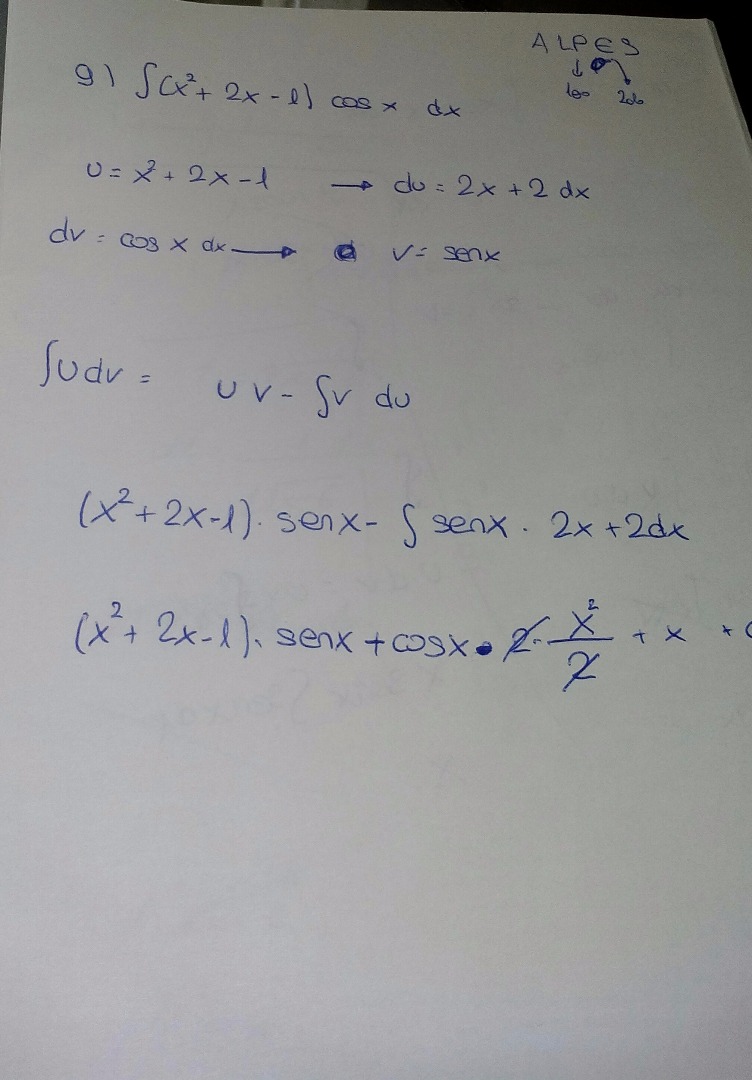 ALPES
↓
9) ∫(x²+ 2x - 1) cos x dx
U = x² + 2x - 1 → du = 2x + 2 dx
dv = cos x dx → v = senx
∫U dv = U v - ∫v du
(x² + 2x - 1) · senx - ∫ senx · 2x + 2dx
(x² + 2x - 1) · senx + cosx · 2 · x²/2 + x + C